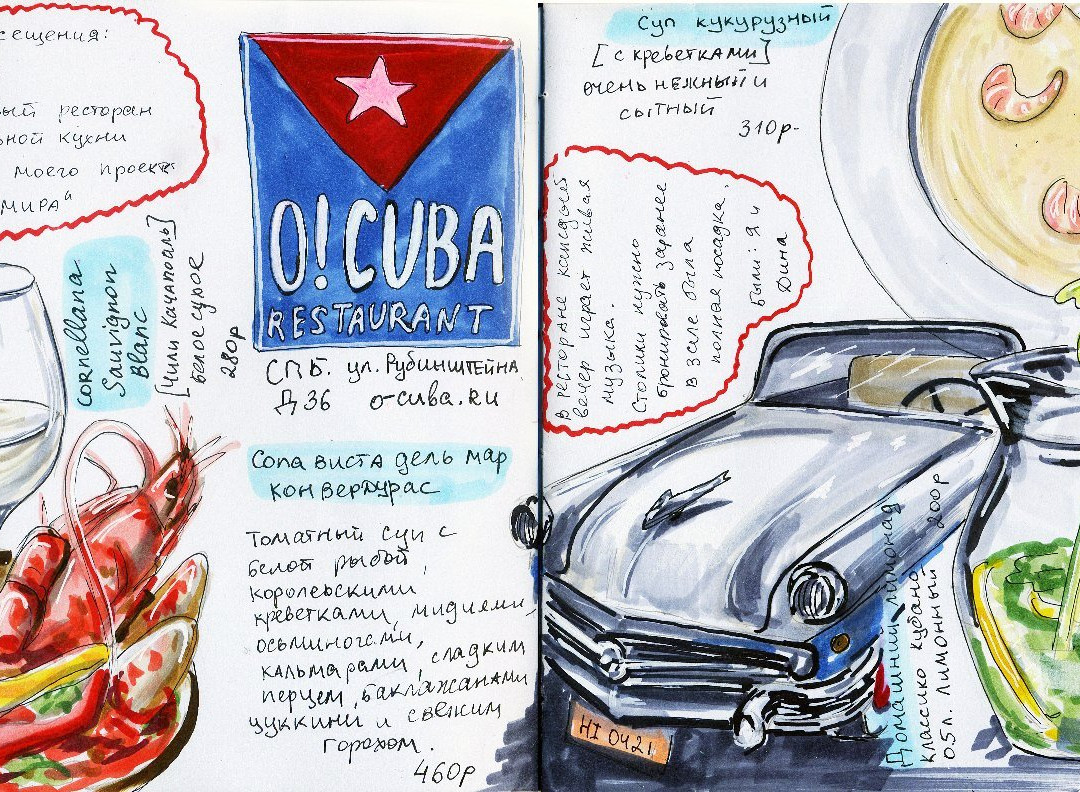 сещения:
ый ресторан
ьной кухни
моего проекта
МИРА"
cornellana
Sauvignon
Blanc
[Чили Качапоаль]
белое сухое
280р
O!CUBA
RESTAURANT
СПБ. ул. Рубинштейна
Д 36 o-cuba.ru
Сопа виста дель мар
конвердурас
Томатный суп с
белой рыбой,
королевскими
креветками, мидиями,
осьминогами,
кальмарами, сладким
перцем, баклажанами
цуккини и свежим
горохом.
460р
Суп кукурузный
[с креветками]
очень нежный и
сытный
310р-
В ресторане каждый
вечер играет живая
музыка.
Столики нужно
бронировать заранее
в зале была
полная посадка.
Были: я и
Дина
HI 0421
Домашний лимонад
классико кубано
0.5л. лимонный 200р